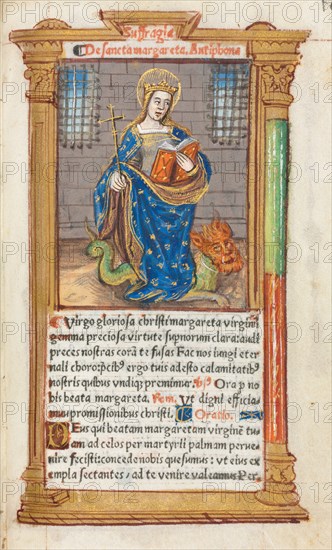 Suffragia
De sancta margareta. Antiphona
Virgo gloriosa christi margareta virginū
gemma preciosa virtute supnorum clara: audi
preces nostras corā te fusas Fac nos iungi eter
nali choro: pcibꝰ ergo tuis adesto calamitatibꝰ
nostris quibus vndiqꝫ premimur. Ora p no
bis beata margareta. Vt digni efficia
mur promissionibus christi. Oratio.
Deus qui beatam margaretam virginē tu
am ad celos per martyrii palmam perue
nire fecisti: concede nobis quesumus: vt eius ex
empla sectantes, ad te venire valeamus Per